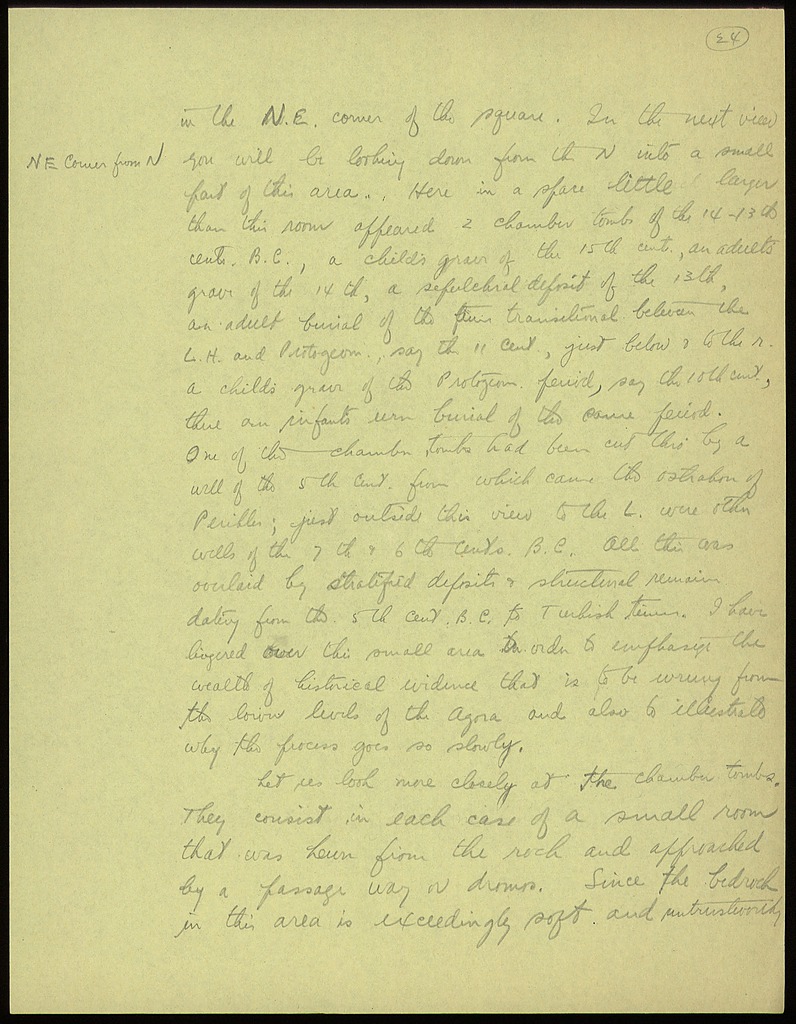 24
in the N.E. corner of the square. In the next view
NE Corner from N
you will be looking down from the N into a small
part of this area.. Here in a space little larger
than this room appeared 2 chamber tombs of the 14-13th
cents. B.C., a child's grave of the 15th cent., an adult's
grave of the 14th, a sepulchral deposit of the 13th,
an adult burial of the time transitional between the
L.H. and Protogeom., say the 11 cent., just below & to the r.
a child's grave of the Protogeom. period, say the 10th cent.,
then an infant's urn burial of the same period.
One of the chamber tombs had been cut thro by a
well of the 5th cent. from which came the ostrakon of
Perikles; just outside this view to the L. were other
wells of the 7th & 6th cents. B.C. All this was
overlaid by stratified deposits & structural remains
dating from the 5th cent. B.C. to Turkish times. I have
lingered over this small area in order to emphasize the
wealth of historical evidence that is to be wrung from
the lower levels of the Agora and also to illustrate
why the process goes so slowly.
Let us look more closely at the chamber tombs.
They consist in each case of a small room
that was hewn from the rock and approached
by a passage way or dromos. Since the bedrock
in this area is exceedingly soft and untrustworthy